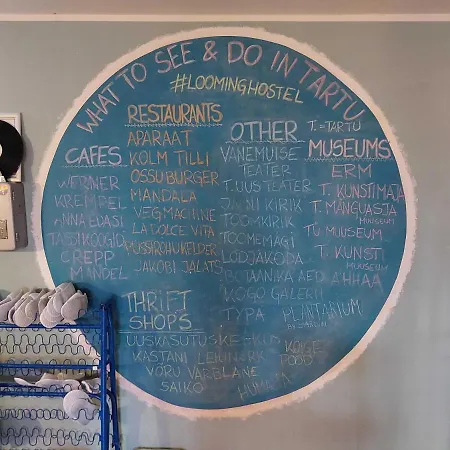 WHAT TO SEE & DO IN TARTU
#LOOMINGHOSTEL
CAFES
WERNER
KREMPEL
ANNA EDASI
TASSIKOOGID
CREPP
MANDEL
RESTAURANTS
APARAAT
KOLM TILLI
OSSU BURGER
MANDALA
VEG MACHINE
LA DOLCE VITA
PÜSSIROHUKELDER
JAKOBI JALATS
THRIFT
SHOPS
UUSKASUTUSKESKUS
KASTANI
VÕRU VARBLANE
SAIKO
HUMANA
OTHER
VANEMUISE
TEATER
T. UUS TEATER
JAANI KIRIK
TOOMKIRIK
TOOMEMÄGI
LODJAKODA
BOTAANIKA AED
KOGO GALERII
TYPA
T. = TARTU
MUSEUMS
ERM
T. KUNSTIMAJA
T. MÄNGUASJA
MUUSEUM
TÜ MUUSEUM
T. KUNSTI
MUUSEUM
AHHAA
PLANTARIUM